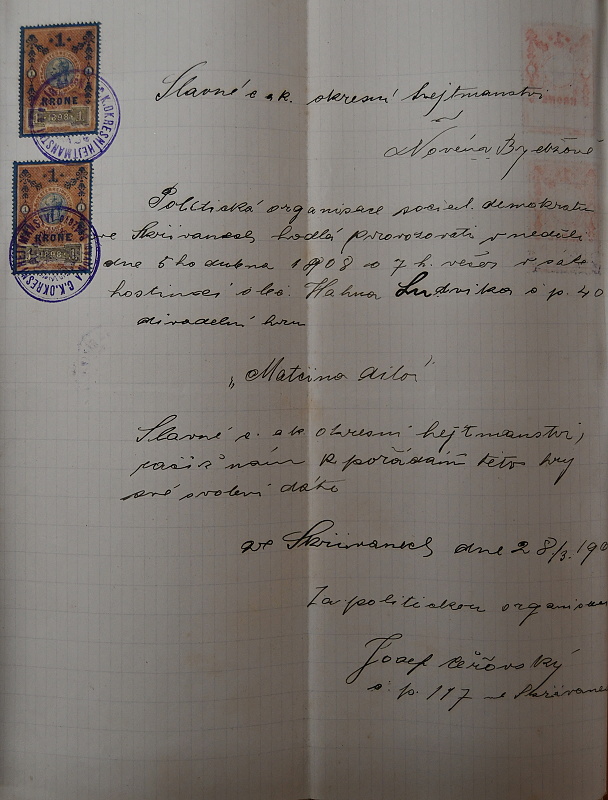 1
KRONE
1898
1
KRONE
1898
C.K. OKRESNÍ HEJTMANST
Slavné c. a k. okresní hejtmanství
v
Novém Bydžově
Politická organisace social. demokratů
ve Skřivanech hodlá provozovati v neděli
dne 5 ho dubna 1908 o 7 h. večer v sále
hostinské obč. Hahna Ludvika č p. 40
divadelní hru
„Matčino dílo"
Slavné c. a k. okresní hejtmanství,
račiž nám k pořádání této hry
své svolení dáti
ve Skřivanech dne 28/3. 190
Za politickou organisa
Josef
č. p. 117 ve Skřivane